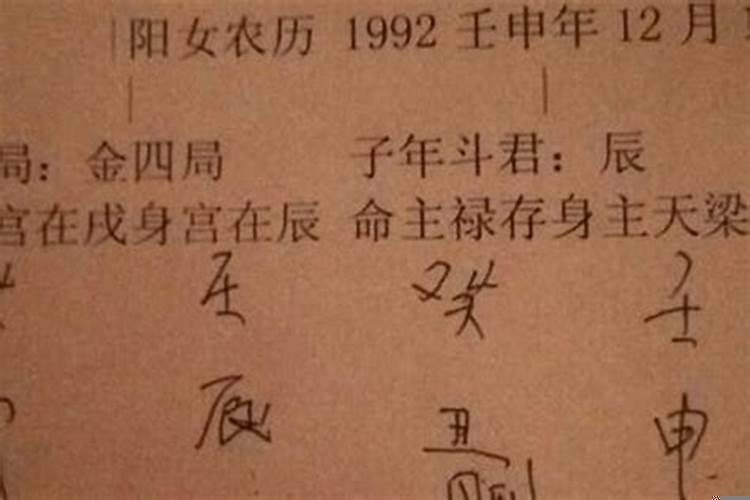 阳女农历 1992 壬申年 12 月
局：金四局 子年斗君：辰
宫在戌身宫在辰 命主禄存身主天梁
壬 癸 壬
辰 丑 申